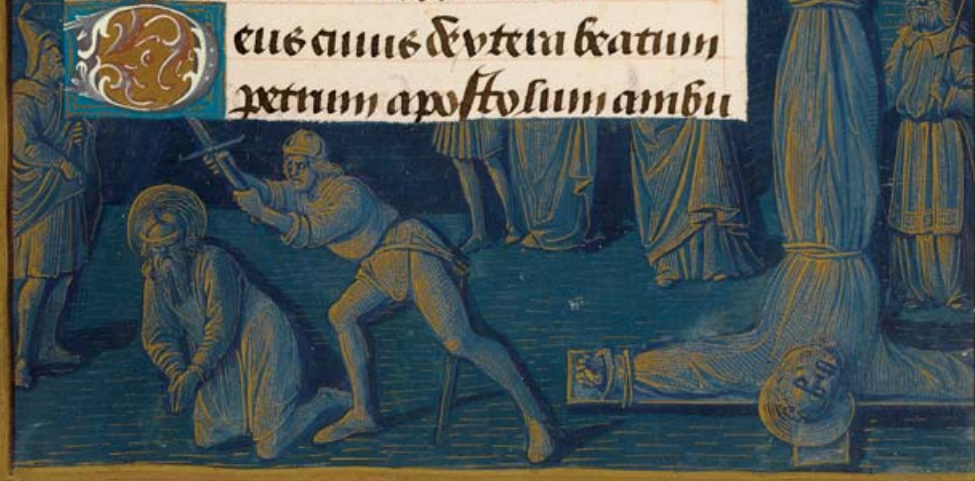 Deus cuius dextera beatum
petrum apostolum ambu